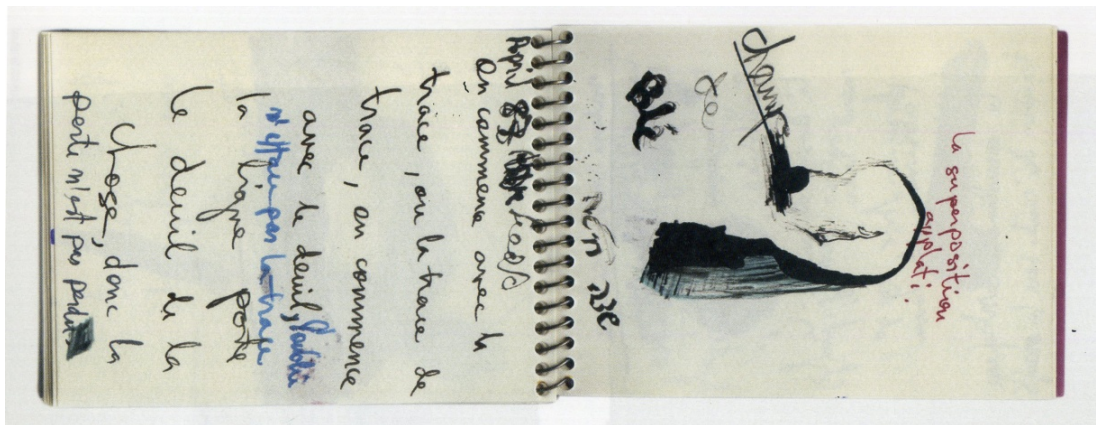 La superposition
applati.
champ
de
Blé
April 83
on commence avec la
trace, ou la trace de
trace, on commence
avec le deuil, l'oubli
n'efface pas la trace
la ligne porte
le deuil de la
Chose, donc la
perte n'est pas perdue